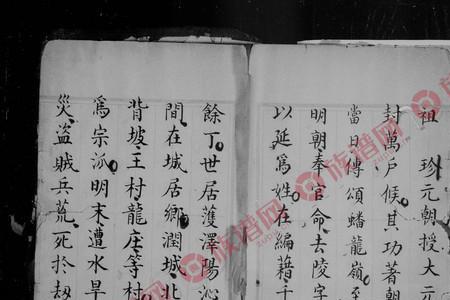 祖　珍元朝授大元
封萬戶候其功著朝
當日傳頌蟠龍嶺至
明朝奉官命去陵字
以延爲姓在編籍千
餘丁世居濩澤陽沁
間在城居鄉潤城北
背坡王村龍庄等村
爲宗派明末遭水旱
災盜賊兵荒死於劫
族谱网
族谱网
族谱网